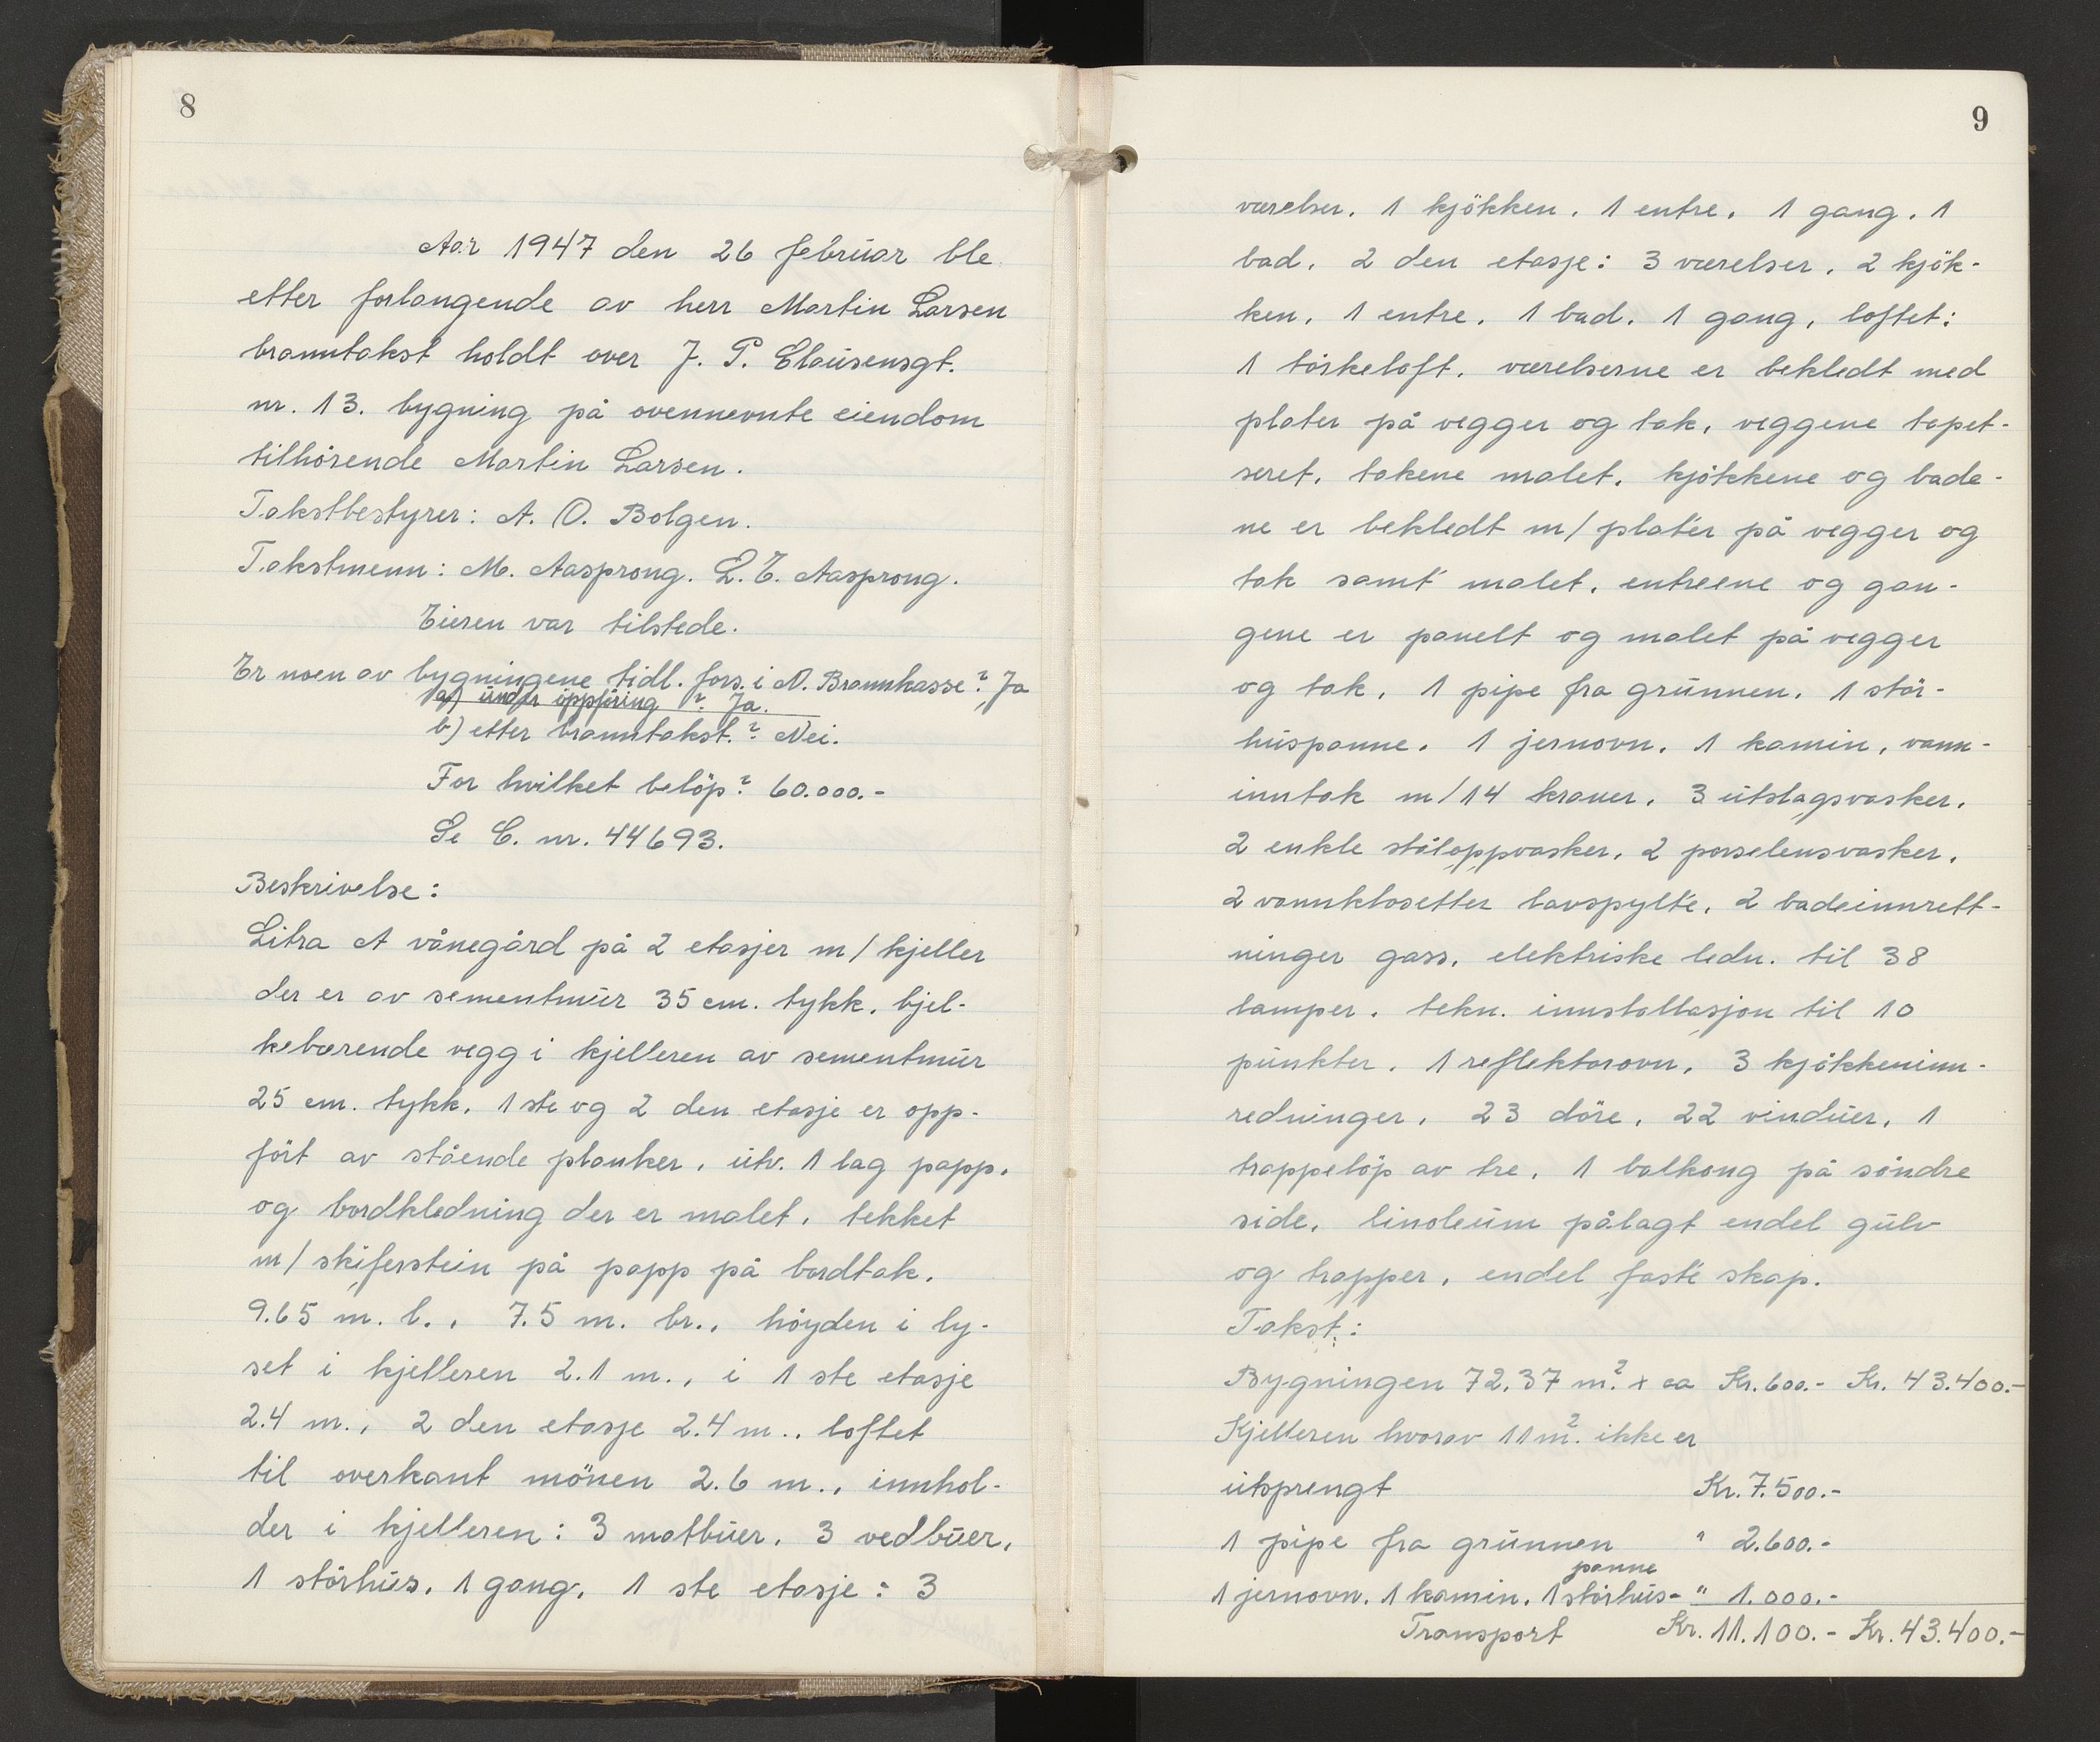 8
Aar 1947 den 26 februar ble
etter forlangende av herr Martin Larsen
branntakst holdt over J. P. Clausensgt.
nr. 13. bygning på ovennevnte eiendom
tilhörende Martin Larsen.
Takstbestyrer: A. O. Bolgen.
Takstmenn: M. Aasprong. L. E. Aasprong.
Eieren var tilstede.
Er noen av bygningene tidl. fors. i N. Brannkasse? Ja
a) under oppföring? Ja.
b) etter branntakst.? Nei.
For hvilket belöp? 60.000.-
Se C. nr. 44693.
Beskrivelse:
Litra A vånegård på 2 etasjer m/ kjeller
der er av sementmur 35 cm. tykk, bjel-
kebærende vegg i kjelleren av sementmur
25 cm. tykk, 1 ste og 2 den etasje er opp-
fört av stående planker, utv. 1 lag papp,
og bordkledning der er malet, tekket
m/ skiferstein på papp på bordtak,
9.65 m. l., 7.5 m. br., höyden i ly-
set i kjelleren 2.1 m., i 1 ste etasje
2.4 m., 2 den etasje 2.4 m., loftet
til overkant mönen 2.6 m., innhol-
der i kjelleren: 3 matbuer, 3 vedbuer,
1 störhus, 1 gang, 1 ste etasje: 3
9
værelser, 1 kjökken, 1 entre, 1 gang, 1
bad, 2 den etasje: 3 værelser, 2 kjök-
ken, 1 entre, 1 bad, 1 gang, loftet:
1 törkeloft, værelserne er bekledt med
plater på vegger og tak, veggene tapet-
seret, takene malet, kjökkene og bade-
ne er bekledt m/ plater på vegger og
tak samt malet, entreene og gan-
gene er panelt og malet på vegger
og tak, 1 pipe fra grunnen, 1 stör-
huspanne, 1 jernovn, 1 kamin, vann-
inntak m/ 14 kraner, 3 utslagsvasker,
2 enkle ståloppvasker, 2 porselensvasker,
2 vannklosetter lavspylte, 2 badeinnrett-
ninger gass, elektriske ledn. til 38
lamper, tekn. innstallasjon til 10
punkter, 1 reflektorovn, 3 kjökkeninn-
redninger, 23 döre, 22 vinduer, 1
trappelöp av tre, 1 balkong på söndre
side, linoleum pålagt endel gulv
og trapper, endel faste skap.
Takst:
Bygningen 72.37 m.² x ca Kr. 600.- Kr. 43.400.-
Kjelleren hvorav 11 m.² ikke er
utsprengt Kr. 7.500.-
1 pipe fra grunnen " 2.600.-
panne
1 jernovn, 1 kamin, 1 störhus- " 1.000.-
Transport Kr. 11.100.- Kr. 43.400.-